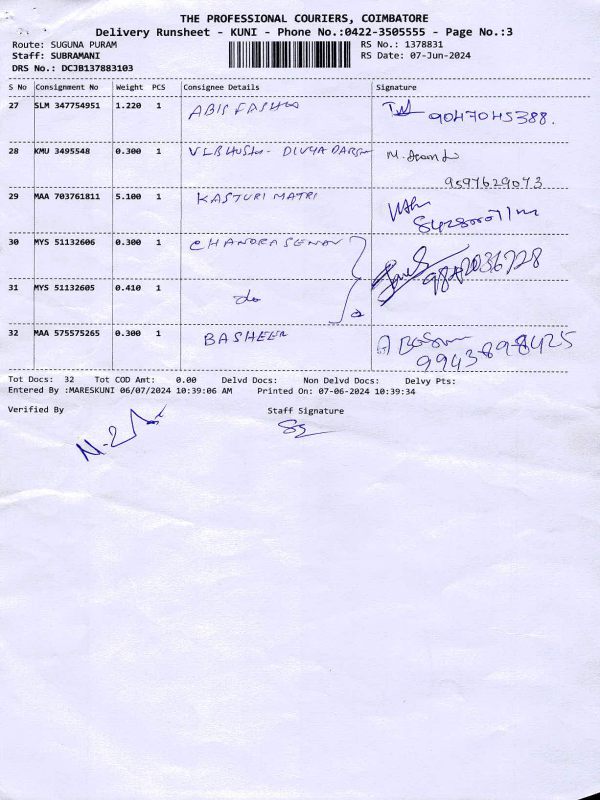 THE PROFESSIONAL COURIERS, COIMBATORE
Delivery Runsheet - KUNI - Phone No.:0422-3505555 - Page No.:3
Route: SUGUNA PURAM RS No.: 1378831
Staff: SUBRAMANI RS Date: 07-Jun-2024
DRS No.: DCJB137883103
S No Consignment No Weight PCS Consignee Details Signature
27 SLM 347754951 1.220 1 ABIS FASHIO 9047045388.
28 KMU 3495548 0.300 1 DIVYA DARSH
9597629073
29 MAA 703761811 5.100 1 KASTURI MATRI
30 MYS 51132606 0.300 1 CHANDRASENAN
9842036728
31 MYS 51132605 0.410 1 do
32 MAA 575575265 0.300 1 BASHEER
9943898425
Tot Docs: 32 Tot COD Amt: 0.00 Delvd Docs: Non Delvd Docs: Delvy Pts:
Entered By :MARESKUNI 06/07/2024 10:39:06 AM Printed On: 07-06-2024 10:39:34
Verified By Staff Signature